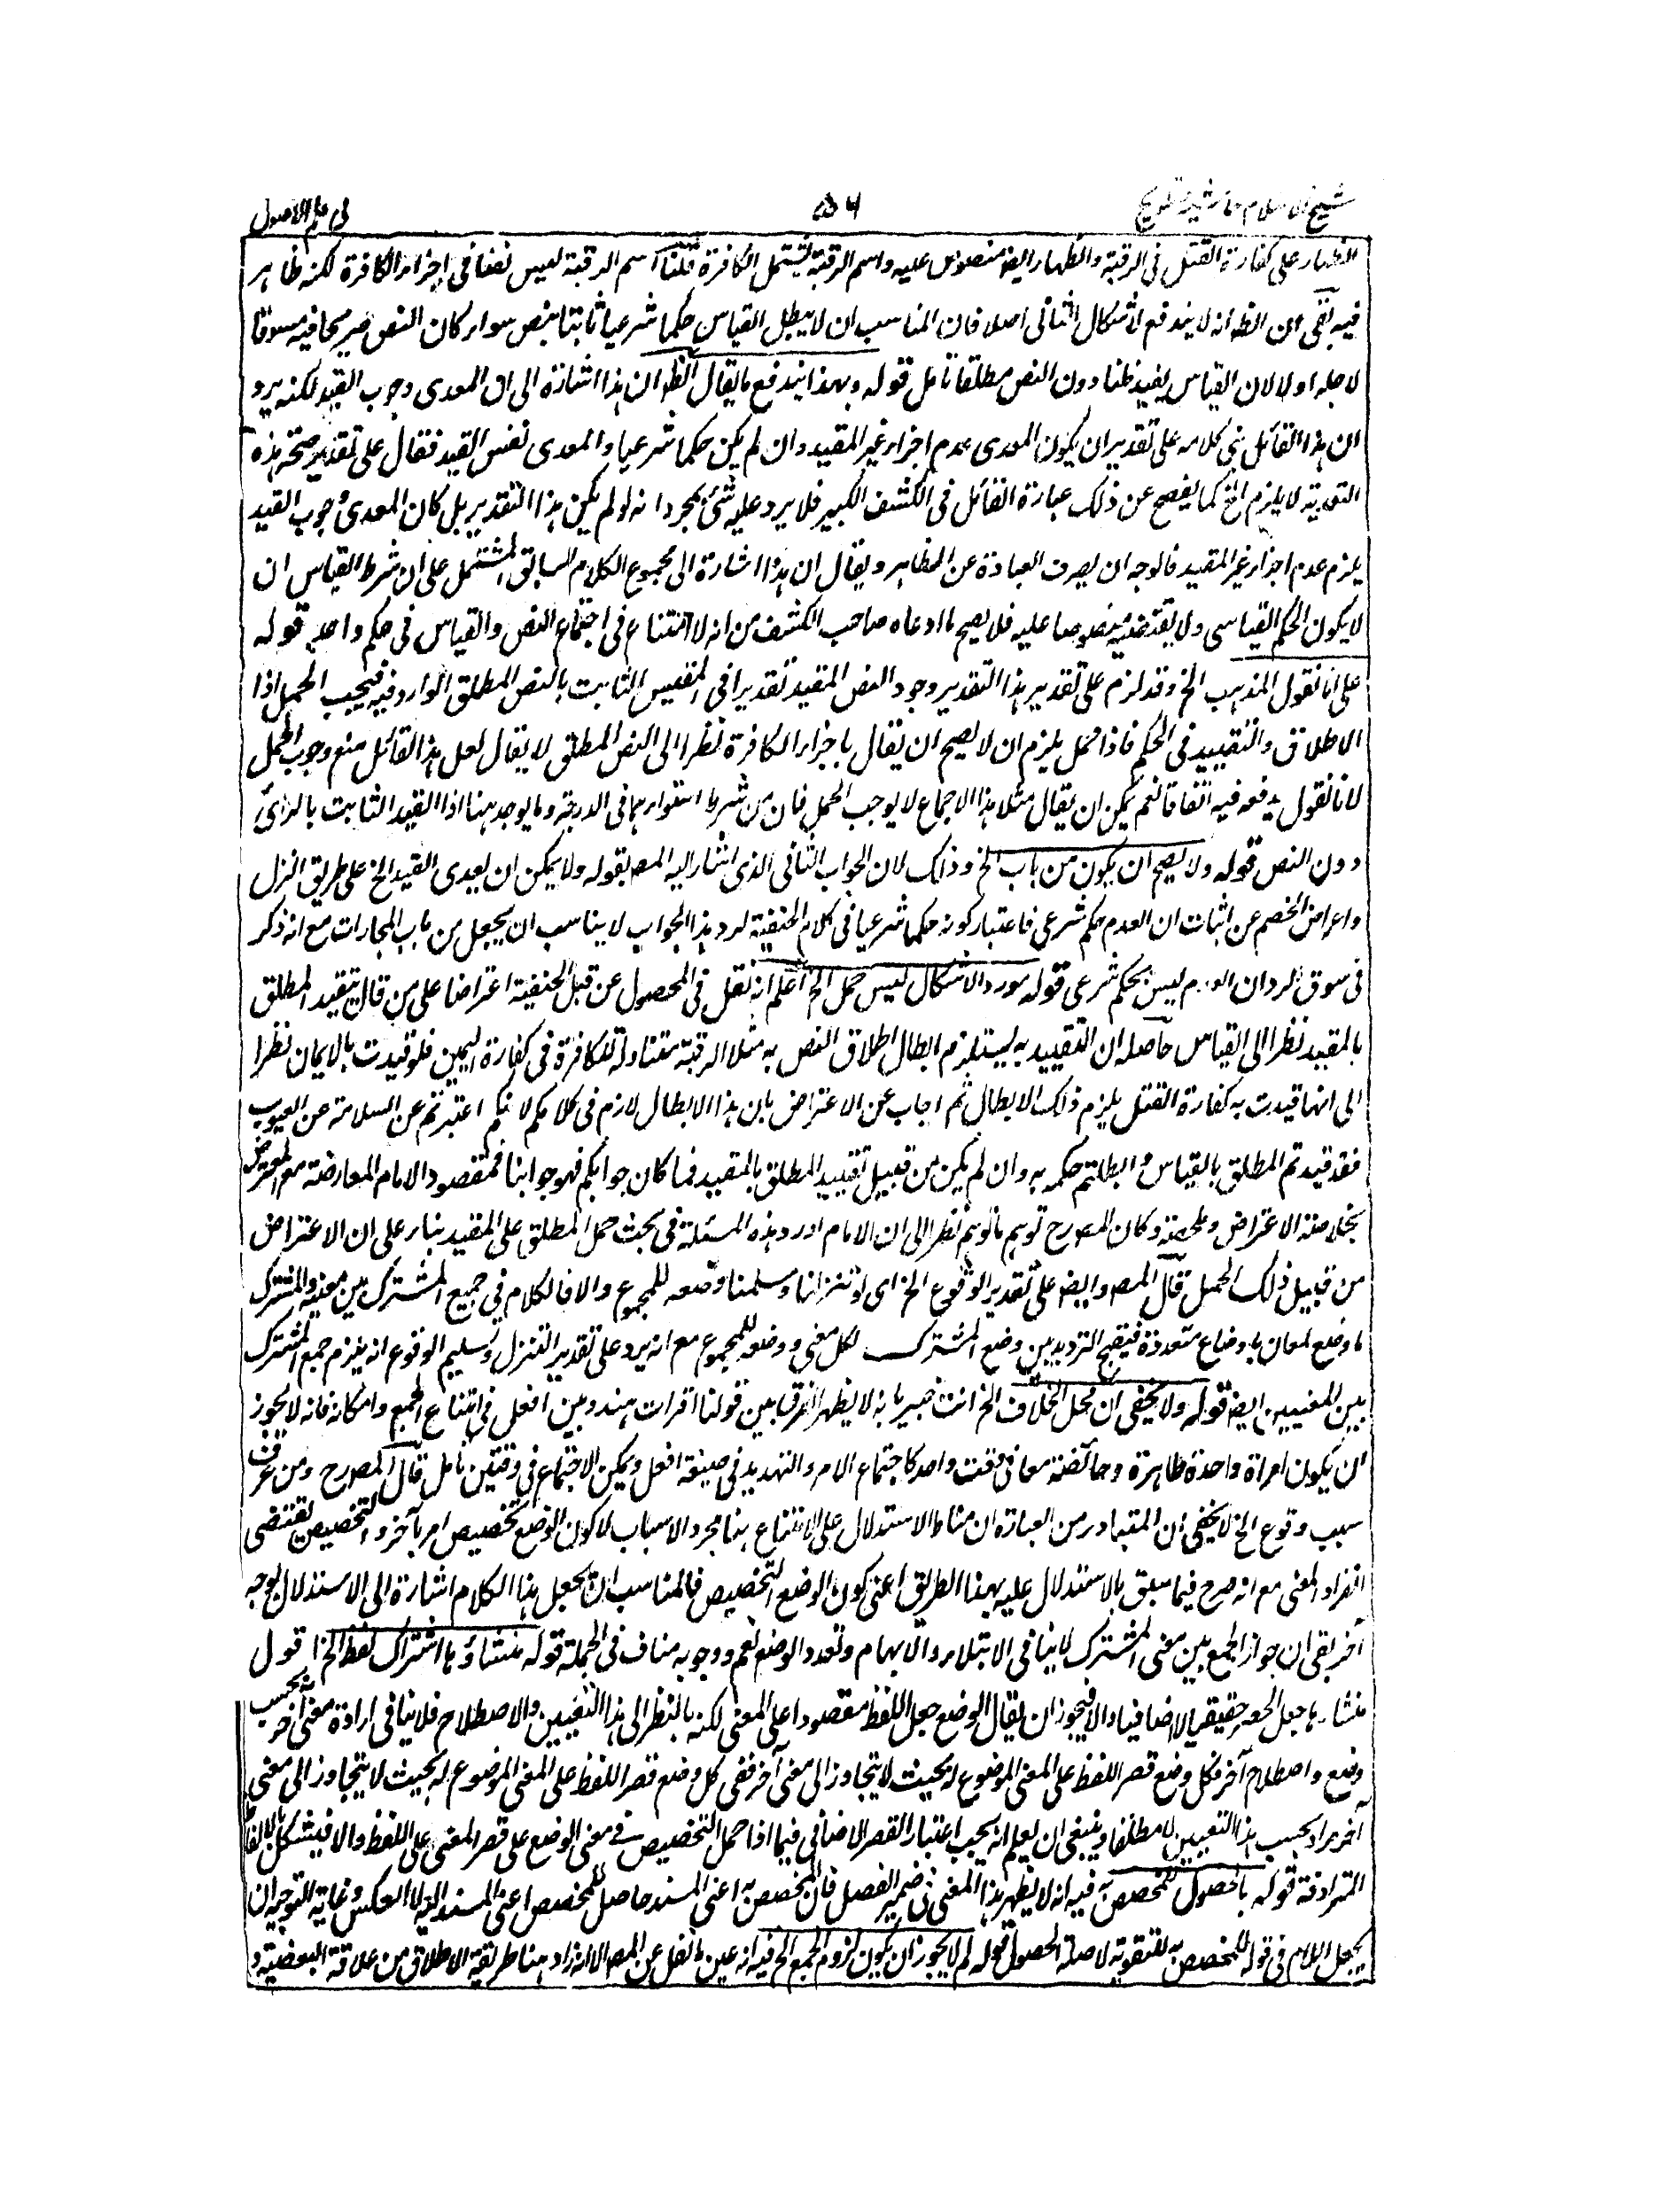 شيخ الاسلام حاشية تلويح
٥٦
فى علم الاصول
الظهار على كفارة القتل فى الرقبة والظهار ايضا منصوص عليه واسم الرقبة يشتمل الكافرة قلنا اسم الرقبة ليس نصا فى اجزاء الكافرة لكنه ظاهر
فيه بقى ان الظ انه لا يندفع الاشكال الثانى اصلا فان المناسب ان لا يبطل القياس حكما شرعيا ثابتا بنص سواء كان النص صريحا فيه مسوقا
لاجله اولا لان القياس يفيد ظنا دون النص مطلقا تامل قوله وبهذا يندفع ما يقال الظ ان هذا اشارة الى ان المعدى وجوب القيد لكنه يرد
ان هذا القائل بنى كلامه على تقدير ان يكون المعدى عدم اجزاء غير المقيد وان لم يكن حكما شرعيا والمعدى نفس القيد فقال على تقدير صحة هذه
التعدية لا يلزم الخ كما يفصح عن ذلك عبارة القائل فى الكشف الكبير فلا يرد عليه شئ بمجرد انه لو لم يكن هذا التقدير بل كان المعدى وجوب القيد
يلزم عدم اجزاء غير المقيد فالوجه ان يصرف العبادة عن الظاهر ويقال ان هذا اشارة الى مجموع الكلام السابق المشتمل على ان شرط القياس ان
لا يكون الحكم القياسى ولا بنقيضه منصوصا عليه فلا يصح ما ادعاه صاحب الكشف من انه لا امتناع فى اجتماع النص والقياس فى حكم واحد قوله
على انا نقول المذهب الخ وقد لزم على تقدير هذا التقدير وجود النص المقيد تقديرا فى المقيس الثابت بالنص المطلق الوارد فيه فيجب الحمل اذا
الاطلاق والتقييد فى الحكم فاذا حمل يلزم ان لا يصح ان يقال باجزاء الكافرة نظرا الى النص المطلق لا يقال لعل هذا القائل منع وجوب الحمل
لانا نقول يدفعه فيه اتفاقا نعم يمكن ان يقال مثلا هذا الاجماع لا يوجب الحمل فان من شرط استوائهما فى الدرجة وما يوجد هنا اذا القيد الثابت بالرأى
دون النص قوله ولا يصح ان يكون من باب الخ وذلك لان الجواب الثانى الذى اشار اليه المصه بقوله ولا يمكن ان يعدى القيد الخ على طريق التنزل
واعراض الخصم عن اثبات ان العدم حكم شرعى فاعتبار كونه حكما شرعيا فى كلام الحنفية لرد هذا الجواب لا يناسب ان يجعل من باب المجارات مع انه ذكر
فى سوق الرد ان العدم ليس بحكم شرعى قوله مورد الاشكال ليس حمل الخ اعلم انه نقل فى المحصول عن قبل الحنفية اعتراضا على من قال بتقييد المطلق
بالمقيد نظرا الى القياس حاصله ان التقييد به يستلزم ابطال اطلاق النص به مثلا الرقبة متناولة للكافرة فى كفارة اليمين فلو قيدت بالايمان نظرا
الى انها قيدت به كفارة القتل يلزم ذلك الابطال ثم اجاب عن الاعتراض بان هذا الابطال لازم فى كلامكم لانكم اعتبرتم عن السلامة عن العيوب
فقد قيدتم المطلق بالقياس وابطلتم حكمه به وان لم يكن من قبيل تقييد المطلق بالمقيد فما كان جوابكم فهو جوابنا فمقصود الامام المعارضة مع المعترض
بخلاصة الاعتراض وملخصه وكان المصرح توهم ما توهم نظرا الى ان الامام اورد هذه المسئلة فى بحث حمل المطلق على المقيد بناء على ان الاعتراض
من قبيل ذلك الحمل قال المصه وايضا على تقدير الوقوع الخ اى لو تنزلنا وسلمنا وضعه للمجموع والا فالكلام فى جميع المشترك بين معنيه والمشترك
ما وضع لمعان باوضاع متعددة فيقبح الترديد بين وضع المشترك لكل معنى ووضعه للمجموع مع انه يرد على تقدير التنزل وتسليم الوقوع انه يلزم جمع المشترك
بين المعنيين ايضا قوله ولا يخفى ان محل الخلاف الخ انت خبير بانه لا يظهر الفرق بين قولنا اقرات هند وبين افعل فى امتناع الجمع وامكانه فانه لا يجوز
ان يكون امراة واحدة طاهرة وحائضة معا فى وقت واحد كاجتماع الامر والتهديد فى صيغة افعل ويمكن الاجتماع فى وقتين تامل قال المصرح ومن عرف
سبب وقوع الخ لا يخفى ان المتبادر من العبارة ان مناط الاستدلال على الامتناع هنا مجرد الاسباب لا كون الوضع تخصيص امر بآخر والتخصيص يقتضى
انفراد المعنى مع انه صرح فيما سبق بالاستدلال عليه بهذا الطريق اعنى كون الوضع التخصيص فالمناسب ان يجعل هذا الكلام اشارة الى الاستدلال بوجه
آخر بقى ان جواز الجمع بين معنى المشترك لا ينافى الابتلاء والابهام وتعدد الوضع نعم ووجوبه مناف فى الجملة قوله منشاؤها اشتراك لفظ الخ اقول
منشاء ها جعل الحصر حقيقيا لا اضافيا والا فيجوز ان يقال الوضع جعل اللفظ مقصودا على المعنى لكنه بالنظر الى هذا التعيين والاصطلاح فلا ينافى ارادة معنى آخر بحسب
وضع واصطلاح آخر فكل وضع قصر اللفظ على المعنى الموضوع له بحيث لا يتجاوز الى معنى آخر ففى كل وضع قصر اللفظ على المعنى الموضوع له بحيث لا يتجاوز الى معنى
آخر يراد بحسب هذا التعيين لا مطلقا وينبغى ان يعلم انه يجب اعتبار القصر الاضافى فيما اذا حمل التخصيص فى معنى الوضع على قصر المعنى على اللفظ والا فيشكل بالالفاظ
المترادفة قوله باخصول للمخصص به فيه انه لا يظهر هذا المعنى فى ضمير الفصل فان المخصص به اعنى المسند حاصل للمخصص اعنى المسند اليه لا العكس وغاية التوجيه ان
يجعل اللام فى قوله للمخصص به للتقوية لا صلة الحصول قوله لم لا يجوز ان يكون لزوم الجمع الخ فيه انه عين ما نقل عن المصه الا انه زاد هنا طريقة الاطلاق من علاقة البعضية و